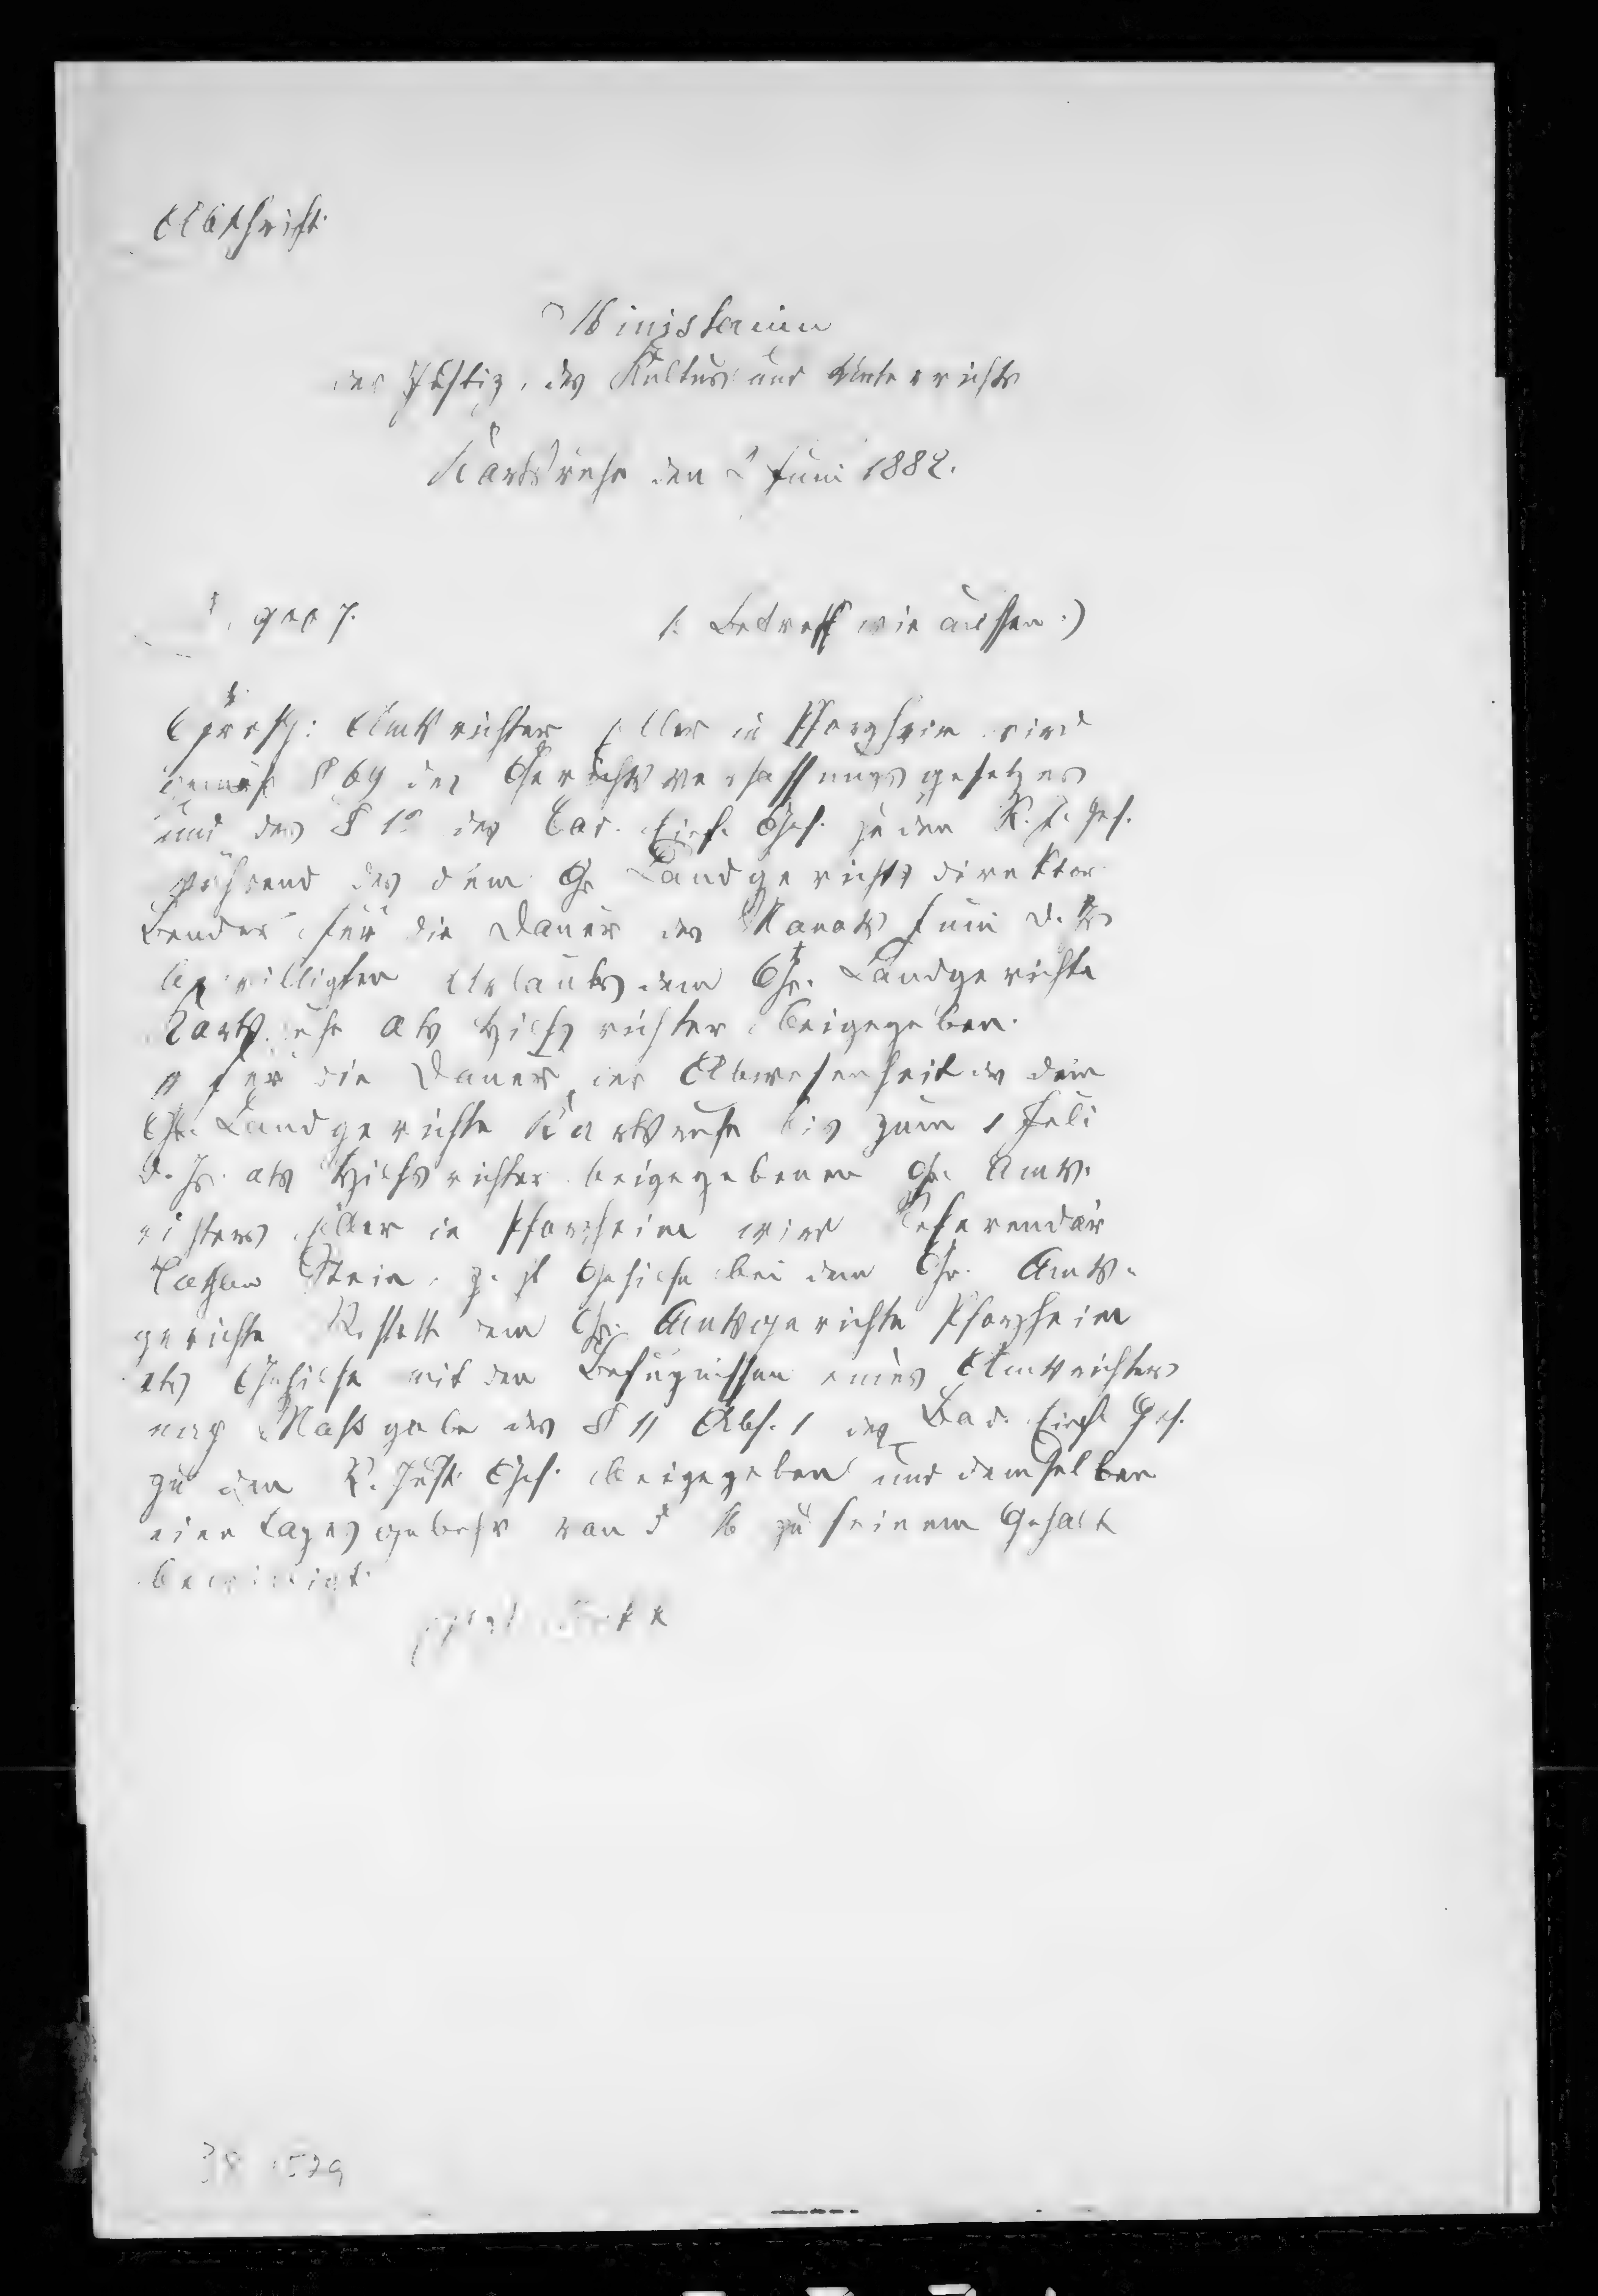 Abschrift.
Ministerium
der Justiz, des Kultus und Unterrichts
Karlsruhe den 2 Juni 1882.
(: Betreff wie aussen :)
Amtsrichter in Pforzheim wird
gemäß § 69 des Gerichtsverfassungsgesetzes
und des § 10 des Bad. Einf. Ges. zu den R. J. Ges.
während des dem Gr. Landgerichtsdirektor
Bender für die Dauer des Monats Juni d. Js
bewilligten Urlaubs dem Gr. Landgerichte
Karlsruhe als Hilfsrichter beigegeben.
II Für die Dauer der Abwesenheit des dem
Gr. Landgerichte Karlsruhe bis zum 1 Juli
d. Js. als Hilfsrichter beigegebenen Gr. Amts-
richters in Pforzheim wird Referendär
Nathan Stein, z. Zt Gehilfe bei dem Gr. Amts-
gerichte Rastatt dem Gr. Amtsgerichte Pforzheim
als Gehilfe mit den Befugnissen eines Amtsrichters
nach Maßgabe des § 11 Abs. 1 des Bad. Einf. Ges.
zu den R. Just. Ges. beigegeben und demselben
eine Tagesgebühr von 3 M zu seinem Gehalt
bewilligt.